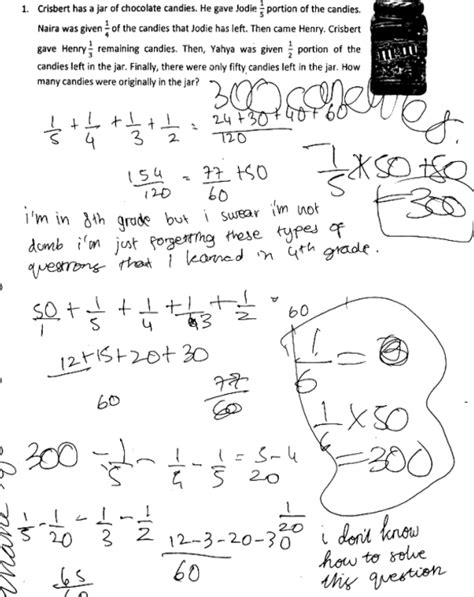 1. Crisbert has a jar of chocolate candies. He gave Jodie 1/5 portion of the candies.
Naira was given 1/4 of the candies that Jodie has left. Then came Henry. Crisbert
gave Henry 1/3 remaining candies. Then, Yahya was given 1/2 portion of the
candies left in the jar. Finally, there were only fifty candies left in the jar. How
many candies were originally in the jar?
300 candies.
1/5 + 1/4 + 1/3 + 1/2 = 24+30+40+60/120
154/120 = 77/60 +50
1/5 × 50 +50
=300
i'm in 8th grade but i swear i'm not
dumb i'm just forgetting these types of
questions that I learned in 4th grade.
50/1 + 1/5 + 1/4 + 1/3 + 1/2 = 60
12+15+20+30
60
77/60
1/6 =
1/6 × 50
=300
300 - 1/5 - 1/4 - 1/5 = 5-4/20
1/20
1/5 - 1/20 - 1/3 - 1/2
12-3-20-30/60
65
i don't know
how to solve
this question